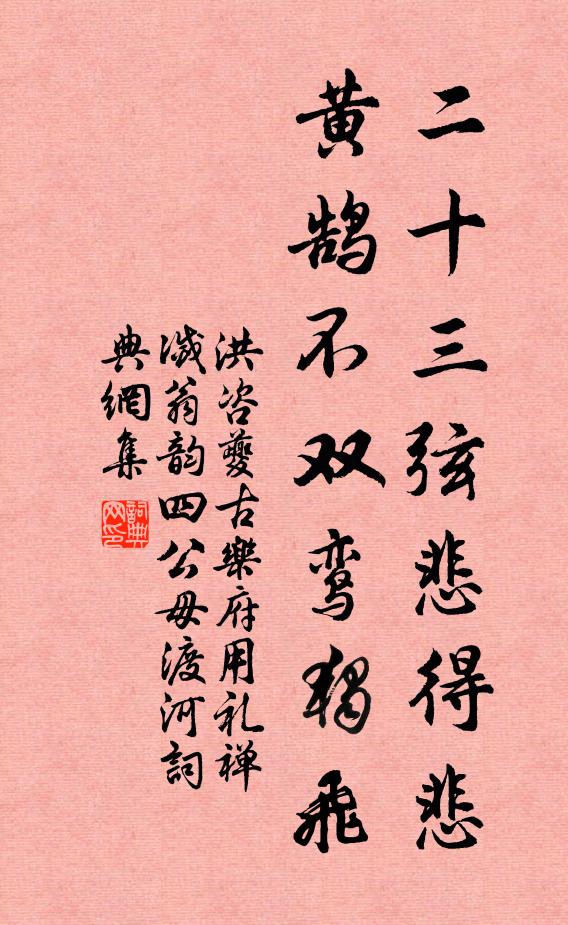 二十三弦悲得悲
黄鹄不双鸾独飛
洪咨夔古樂府用礼禅
滅翁韵四公毋渡河詞
典網集
詞典
网印